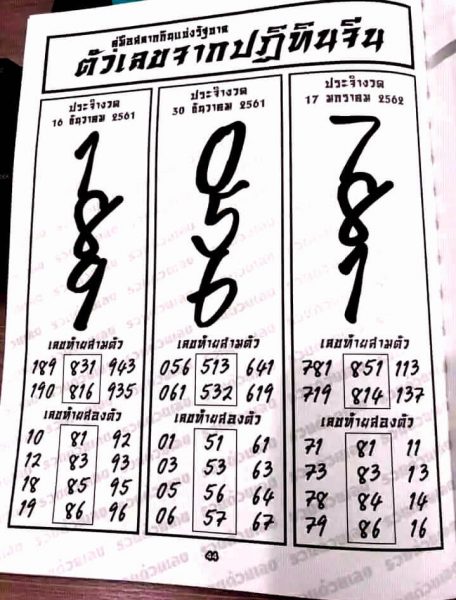 คู่มือสลากกินแบ่งรัฐบาล
ตัวเลขจากปฏิทินจีน
ประจำงวด
16 ธันวาคม 2561
1
8
9
เลขท้ายสามตัว
189 831 943
190 816 935
เลขท้ายสองตัว
10 81 92
12 83 93
18 85 95
19 86 96
ประจำงวด
30 ธันวาคม 2561
0
5
6
เลขท้ายสามตัว
056 513 641
061 532 619
เลขท้ายสองตัว
01 51 61
03 53 63
05 56 64
06 57 67
ประจำงวด
17 มกราคม 2562
7
8
1
เลขท้ายสามตัว
781 851 113
719 814 137
เลขท้ายสองตัว
71 81 11
73 83 13
78 84 14
79 86 16